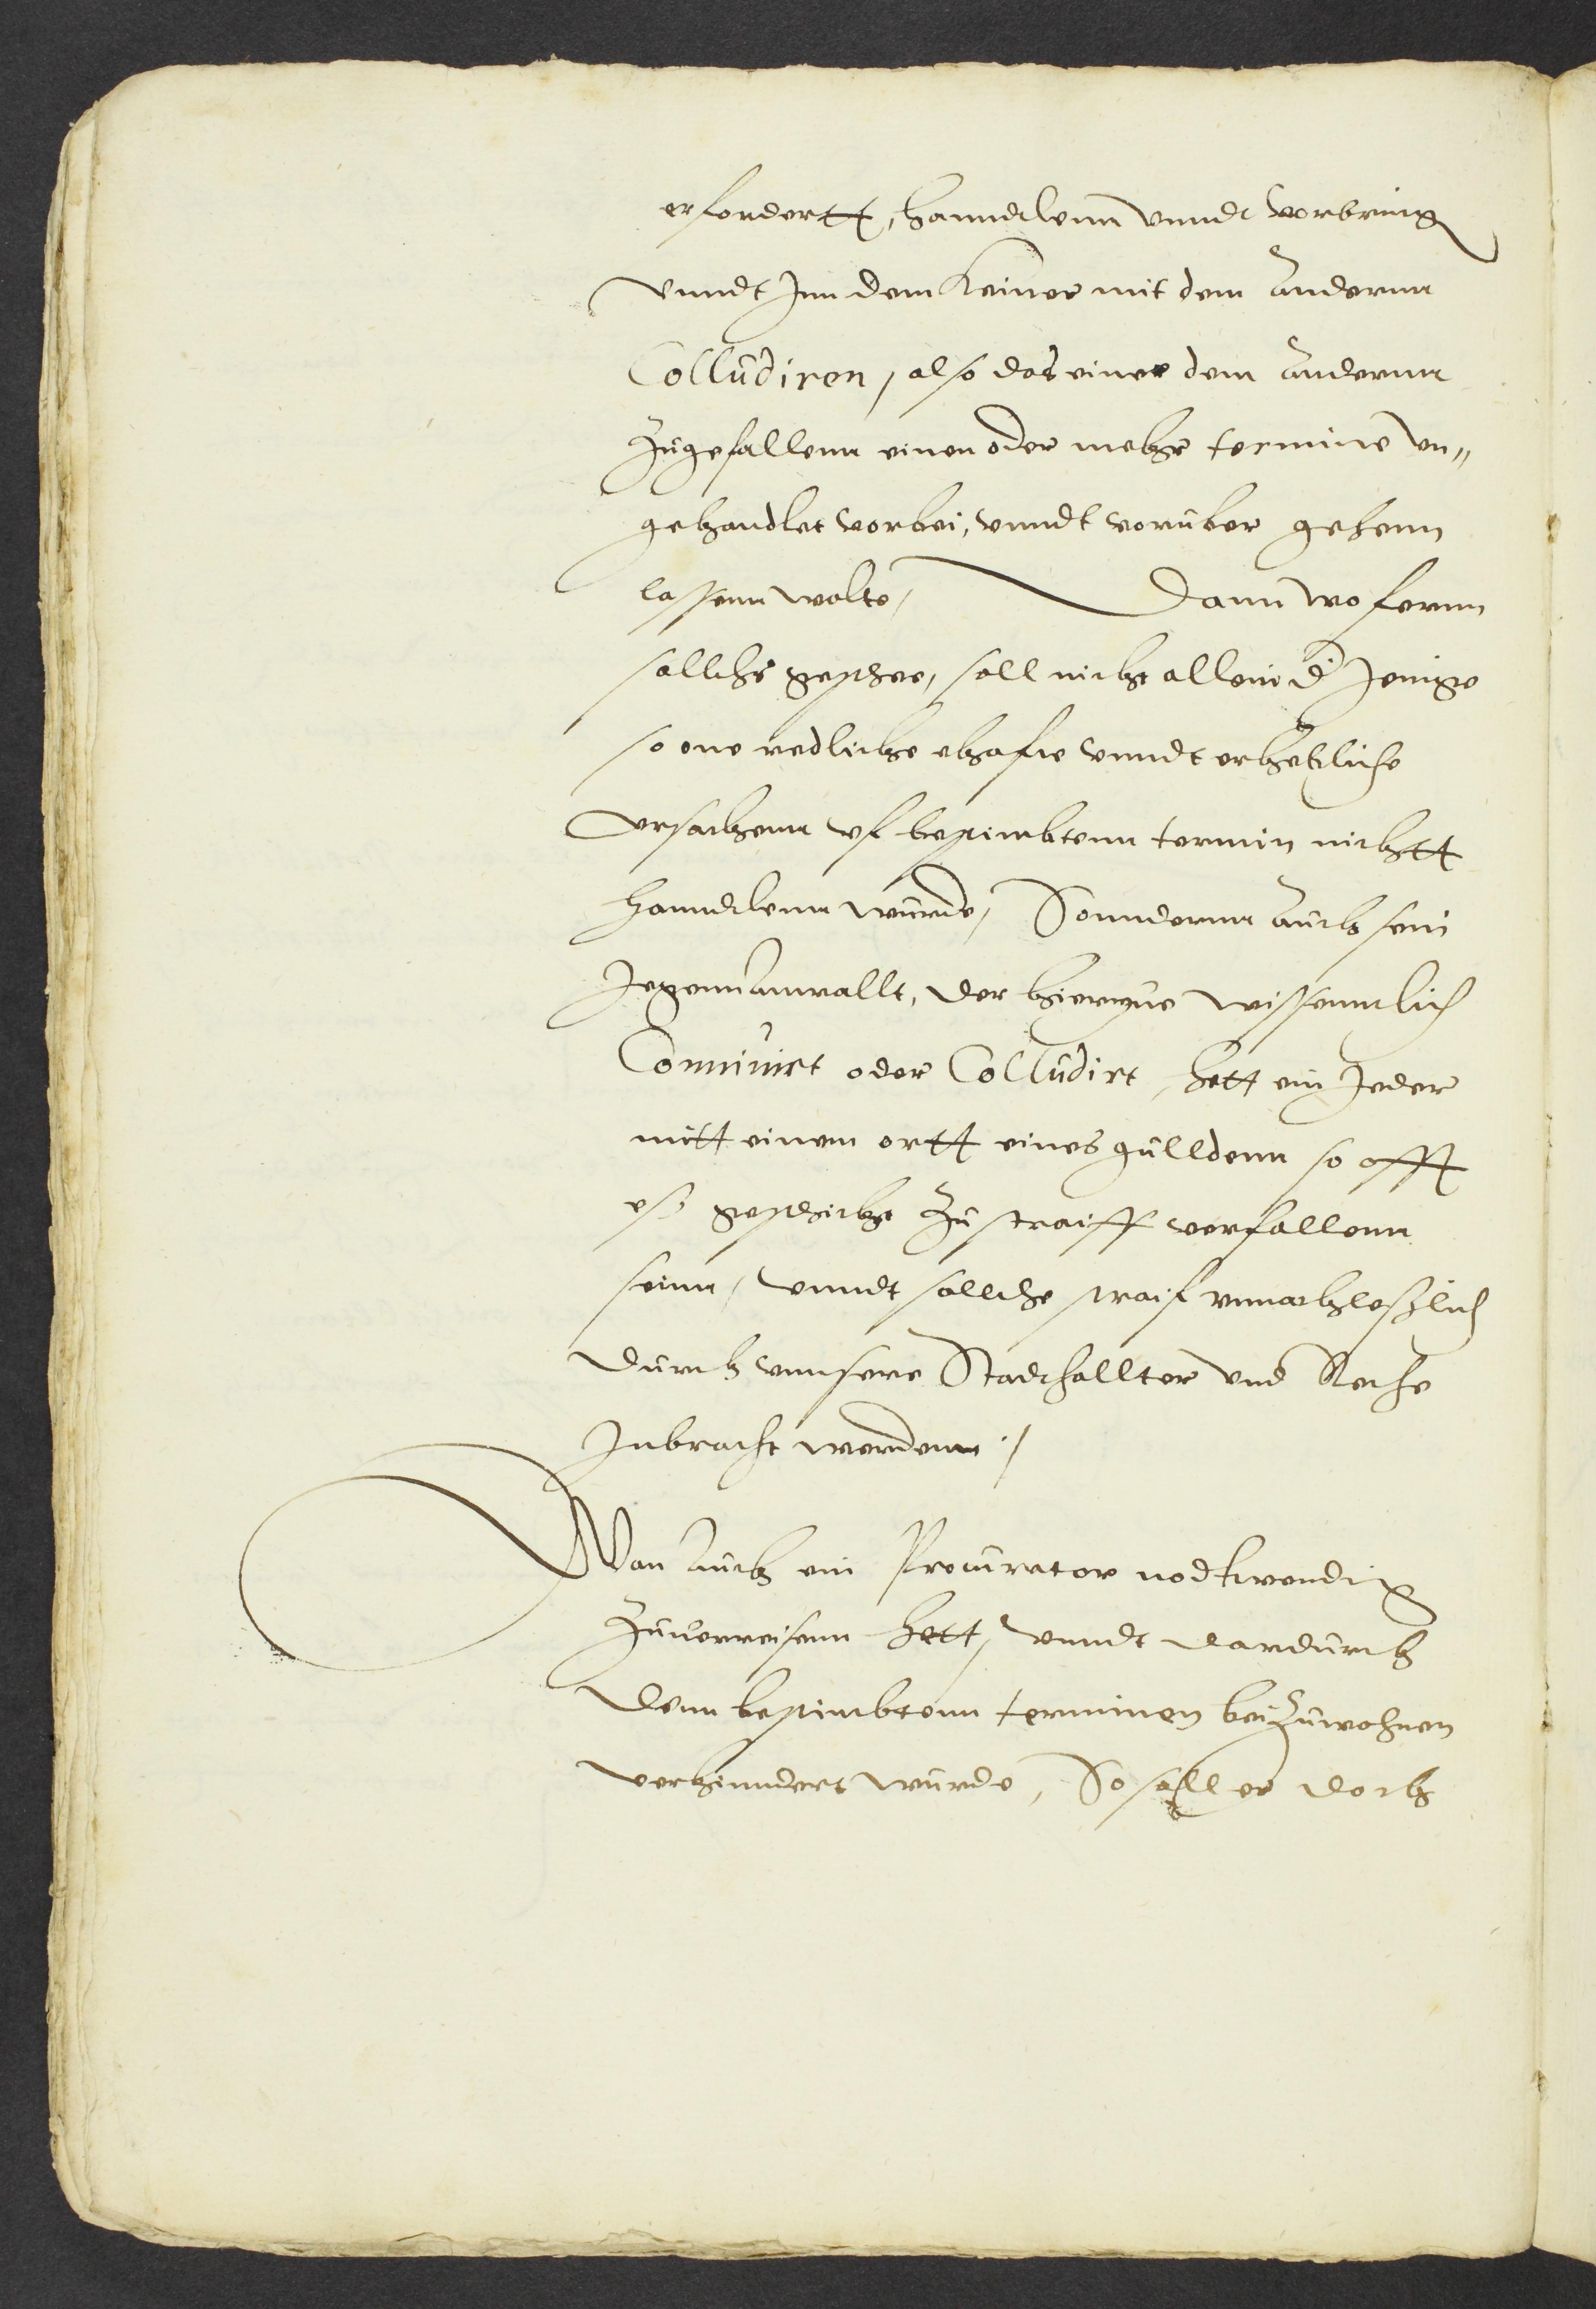 erfordertt, hanndlenn vnndt vorbring
vnndt Inn dem Keiner mit dem Anndernn
Colludiren, also das einer dem Anndernn
Zugefallenn einen oder mehr termine vn„
gehandlet vorbei, vnndt vorüber gehenn
lassenn wolte, Dann wo fernn
sollchs geschee, soll nicht allein d' Jenige
so one redliche ehafte vnndt erhebliche
vrsachenn vf bestimbtenn termin nichtt
hanndlenn wurde, Sonndernn Auch sein
Jegennanwallt, der hierynne wissenntlich
Connivirt oder Colludirt, hett ein Jeder
mitt einem ortt eines gülldenn so offt
eß geschicht Zu straiff verfallenn
seinn, vnndt sollche straif vnnachleßlich
durch vnnsere Stadthallter vnd Rethe
Inbracht werdenn /
Wan Auch ein Procurator nodtwendig
Zuuerreisenn hett, vnndt dardurch
denn bestimbtenn terminen beiZuwohnen
verhinndert wurde, So soll er doch